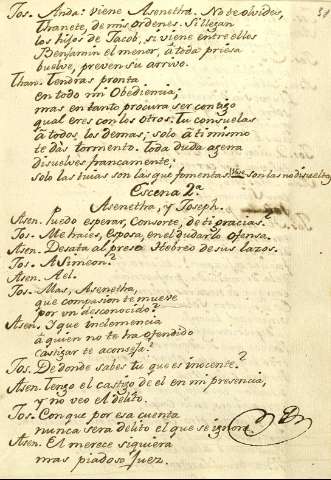 Jos. Anda: viene Asenetha. No te olvides,
Thanete, de mis ordenes. Si llegan
los hijos de Jacob, si viene entre ellos
Benjamin el menor, â toda priesa
buelve, preven su arrivo.
Than. Tendras pronta
en todo mi Obediencia;
mas en tanto procura ser contigo
qual eres con los otros. Tu consuelas
â todos los demas; solo â ti mismo
te dàs tormento. Toda duda agena
disuelves francamente;
solo las tuias son las que fomentas. son las no disueltas
Escena 2.ª
Asenetha, y Joseph.
Asen. Puedo esperar, Consorte, de ti gracias?
Jos. Me haces, Esposa, en el dudarlo ofensa.
Asen. Desata al preso Hebreo de sus lazos.
Jos. A Simeon?
Asen. A el.
Jos. Mas, Asenetha,
que compasion te mueve
por vn desconocido?
Asen. Y que inclemencia
â quien no te ha ofendido
castigar te aconseja?
Jos. De donde sabes tu que es inocente?
Asen. Tengo el castigo de el en mi presencia,
y no veo el delito.
Jos. Con que por esa cuenta
nunca serà delito el que se ignora.
Asen. El merece siquiera
mas piadoso Juez.